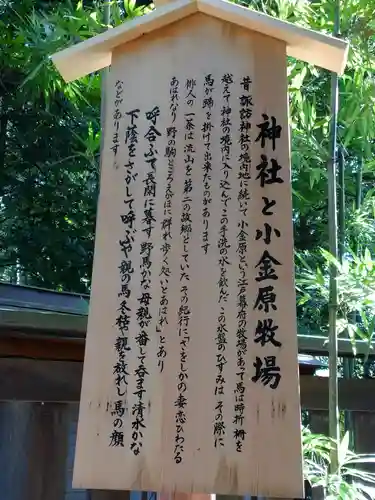 神社と小金原牧場
昔 諏訪神社の境内地に続いて 小金原という江戸幕府の牧場があって 馬は時折 柵を
越えて神社の境内に入り込んで この手洗の水を飲んだ この水盤のひずみは その際に
馬が蹄を掛けて出来たものがあります
俳人の一茶は流山を第二の故郷としていた その紀行に「さをしかの妻恋ひわたる
あはれなり 野の駒ところえがほに群れ歩く処いとあはれ」とあり
呼合ふて長閑に暮す野馬かな 母親が番して呑ます清水かな
下蔭をさがして呼ぶや親の馬 冬枯や親に放れし馬の顔
などがあります